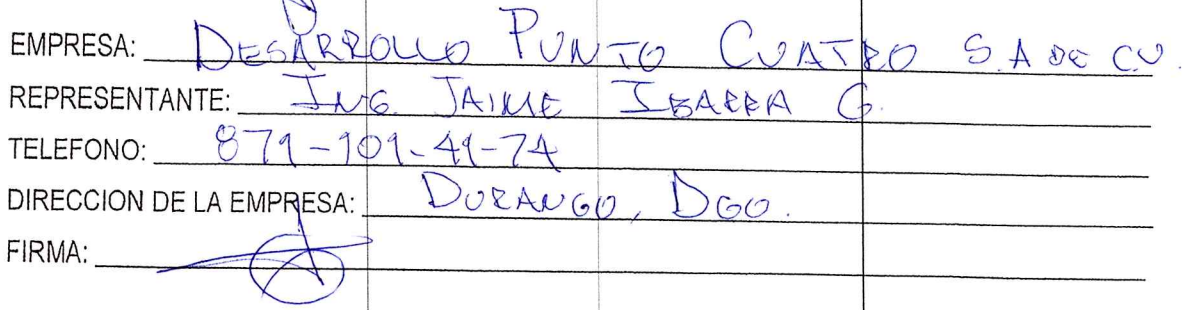 EMPRESA: DESARROLLO PUNTO CUATRO S.A DE C.V.
REPRESENTANTE: ING. JAIME IBARRA G.
TELEFONO: 871-101-41-74
DIRECCION DE LA EMPRESA: DURANGO, DGO.
FIRMA: